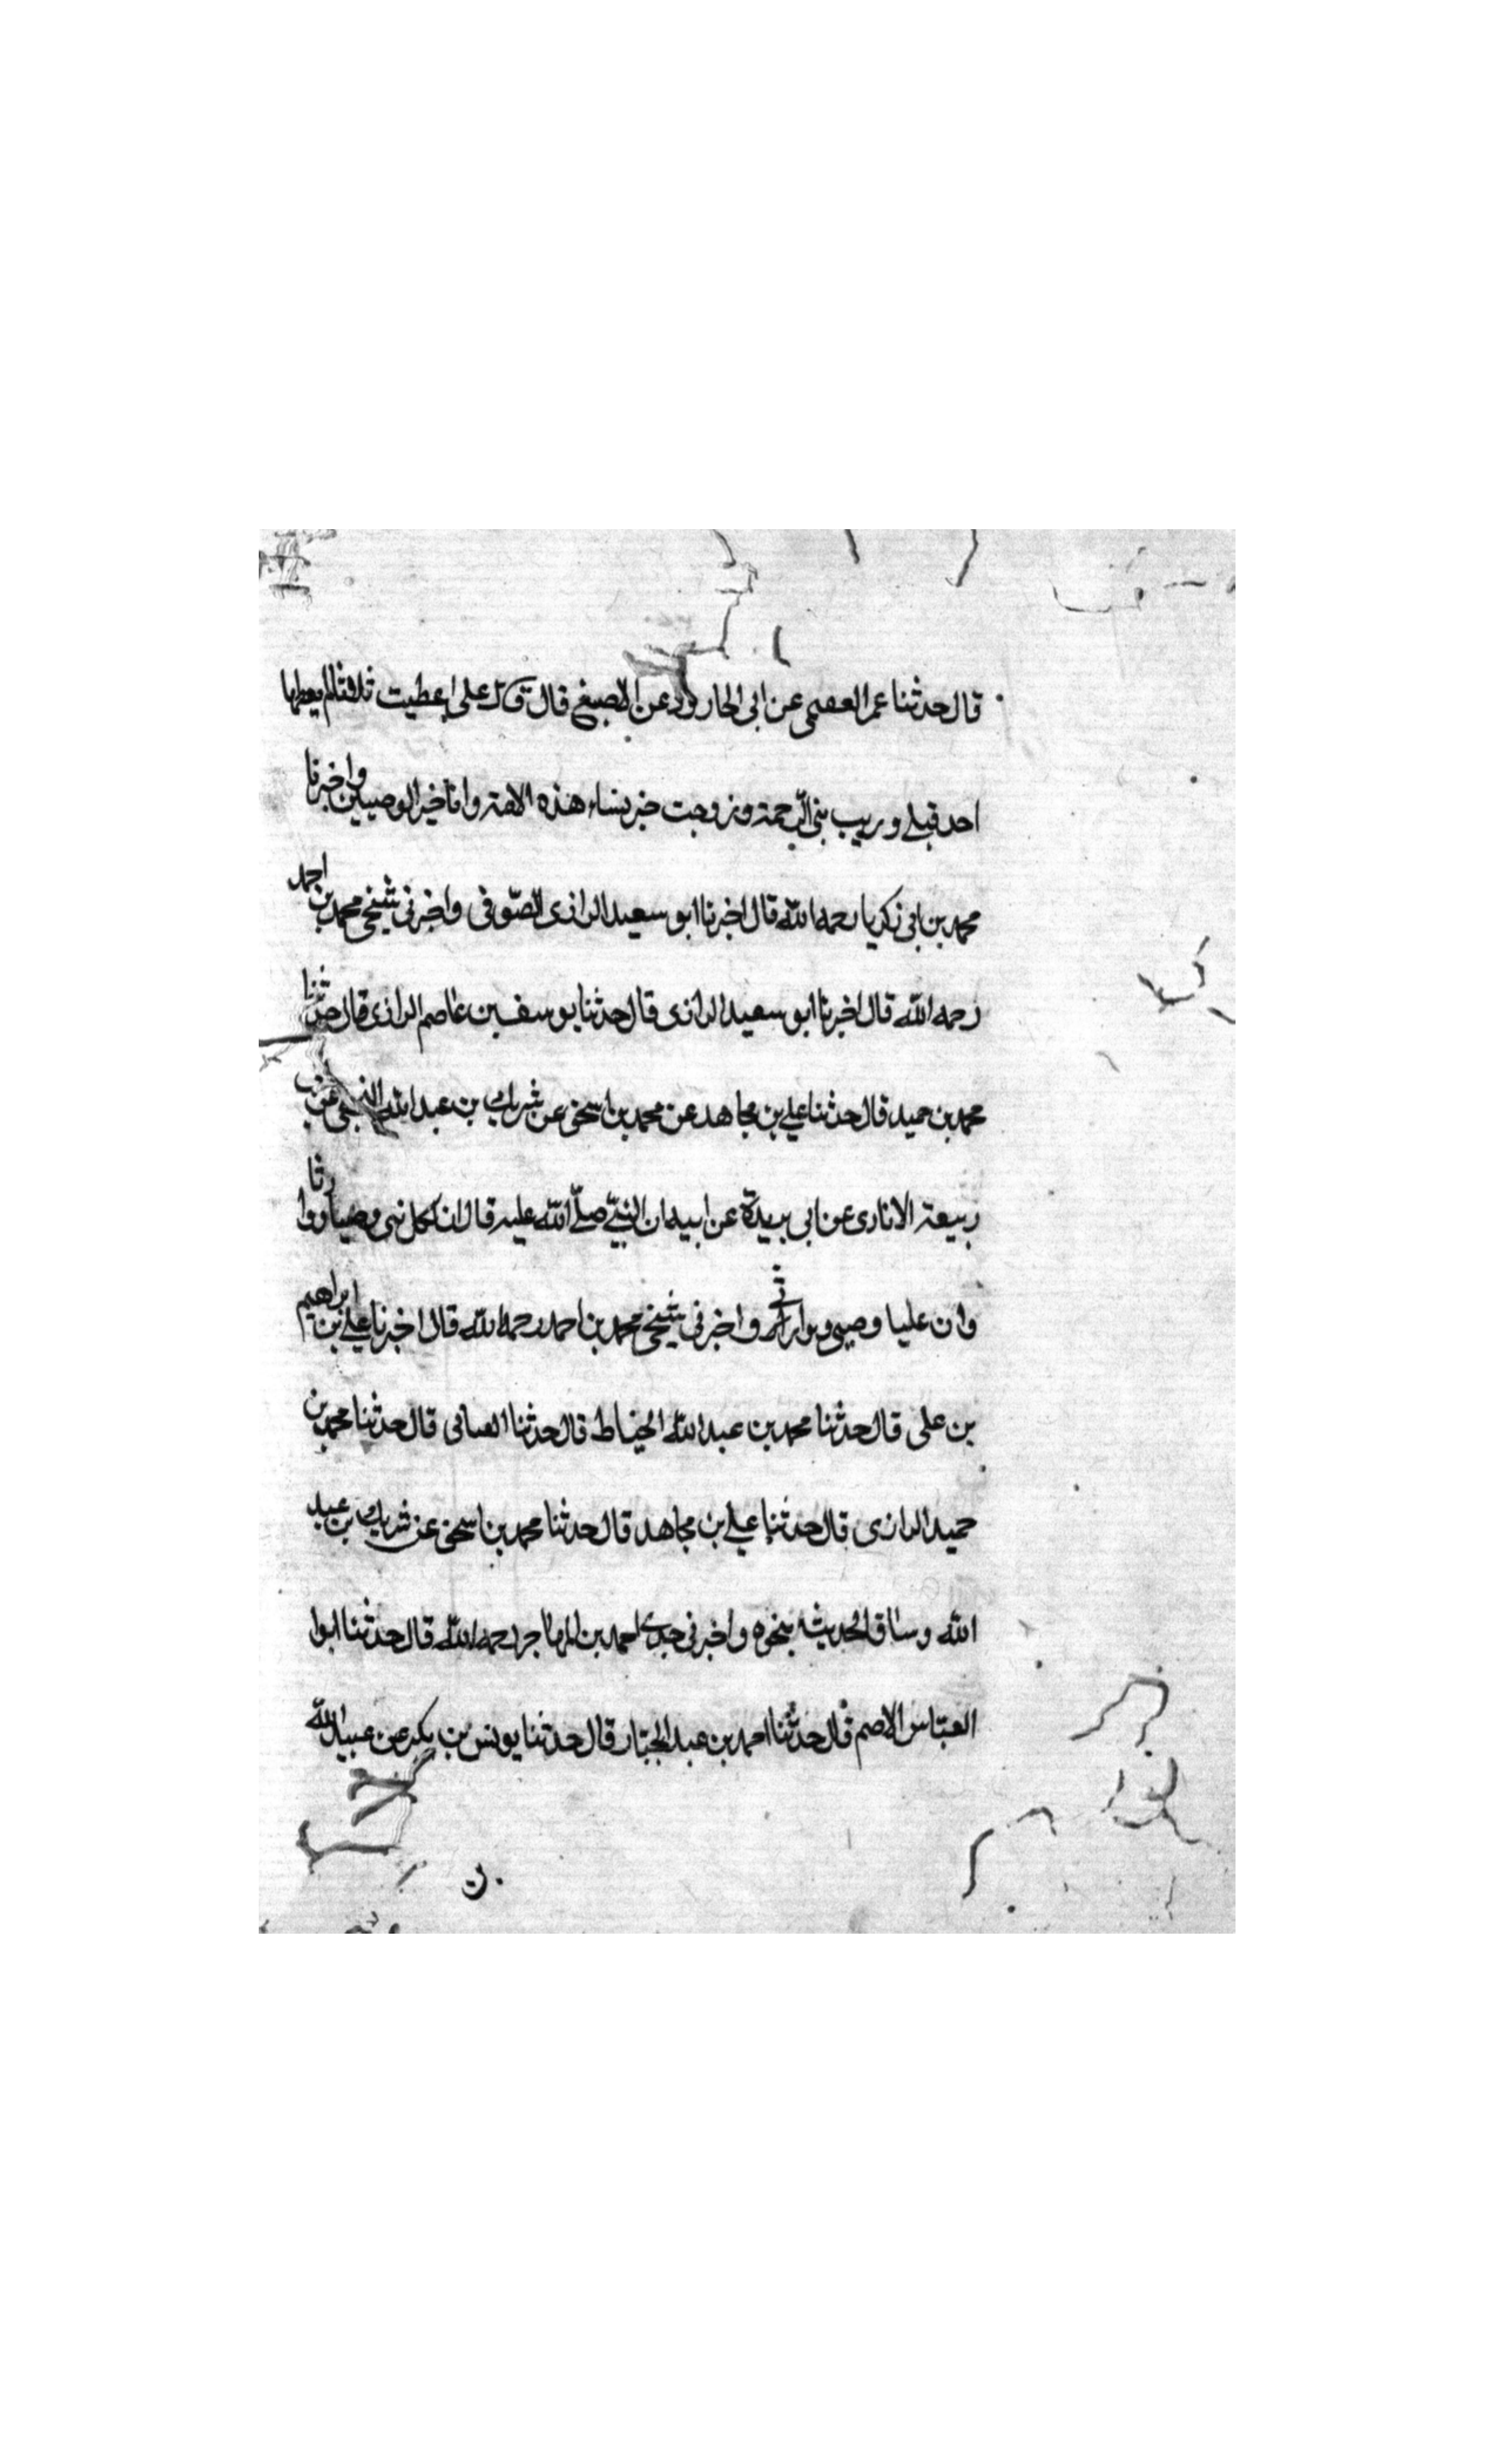 قال حدثنا عمر العصمى عن ابى الجارود عن الاصبغ قال قال على اعطيت ثلاثا لم يعطها
احد قبلى وريب بنى الرحمة وزوجت خير نساء هذه الامة وانا خير الوصيين واخبرنا
محمد بن ابى زكريا رحمه الله قال اخبرنا ابو سعيد الرازى الصّوفى واخبرنى شيخى محمد بن احمد
رحمه الله قال اخبرنا ابو سعيد الرازى قال حدثنا يوسف بن عاصم الرازى قال حدّثنا
محمد بن حميد قال حدثنا على بن مجاهد عن محمد بن اسحق عن شريك بن عبد الله عن
ربيعة الانارى عن ابى بريدة عن ابيه ان النبىّ صلّى الله عليه قال ان لكل نبى وصيا ووارثا
وان عليا وصيى ووارثى واخبرنى شيخى محمد بن احمد رحمه الله قال اخبرنا على بن ابراهيم
بن على قال حدثنا محمد بن عبد الله الخياط قال حدثنا قال حدثنا محمد بن
حميد الرازى قال حدثنا على بن مجاهد قال حدثنا محمد بن اسحق عن شريك بن عبد
الله وساق الحديث بنحوه واخبرنى جدى احمد بن المهاجر رحمه الله قال حدثنا ابوا
العبّاس الاصم قال حدثنا احمد بن عبد الجبّار قال حدثنا يونس بن بكير عن عبيد الله